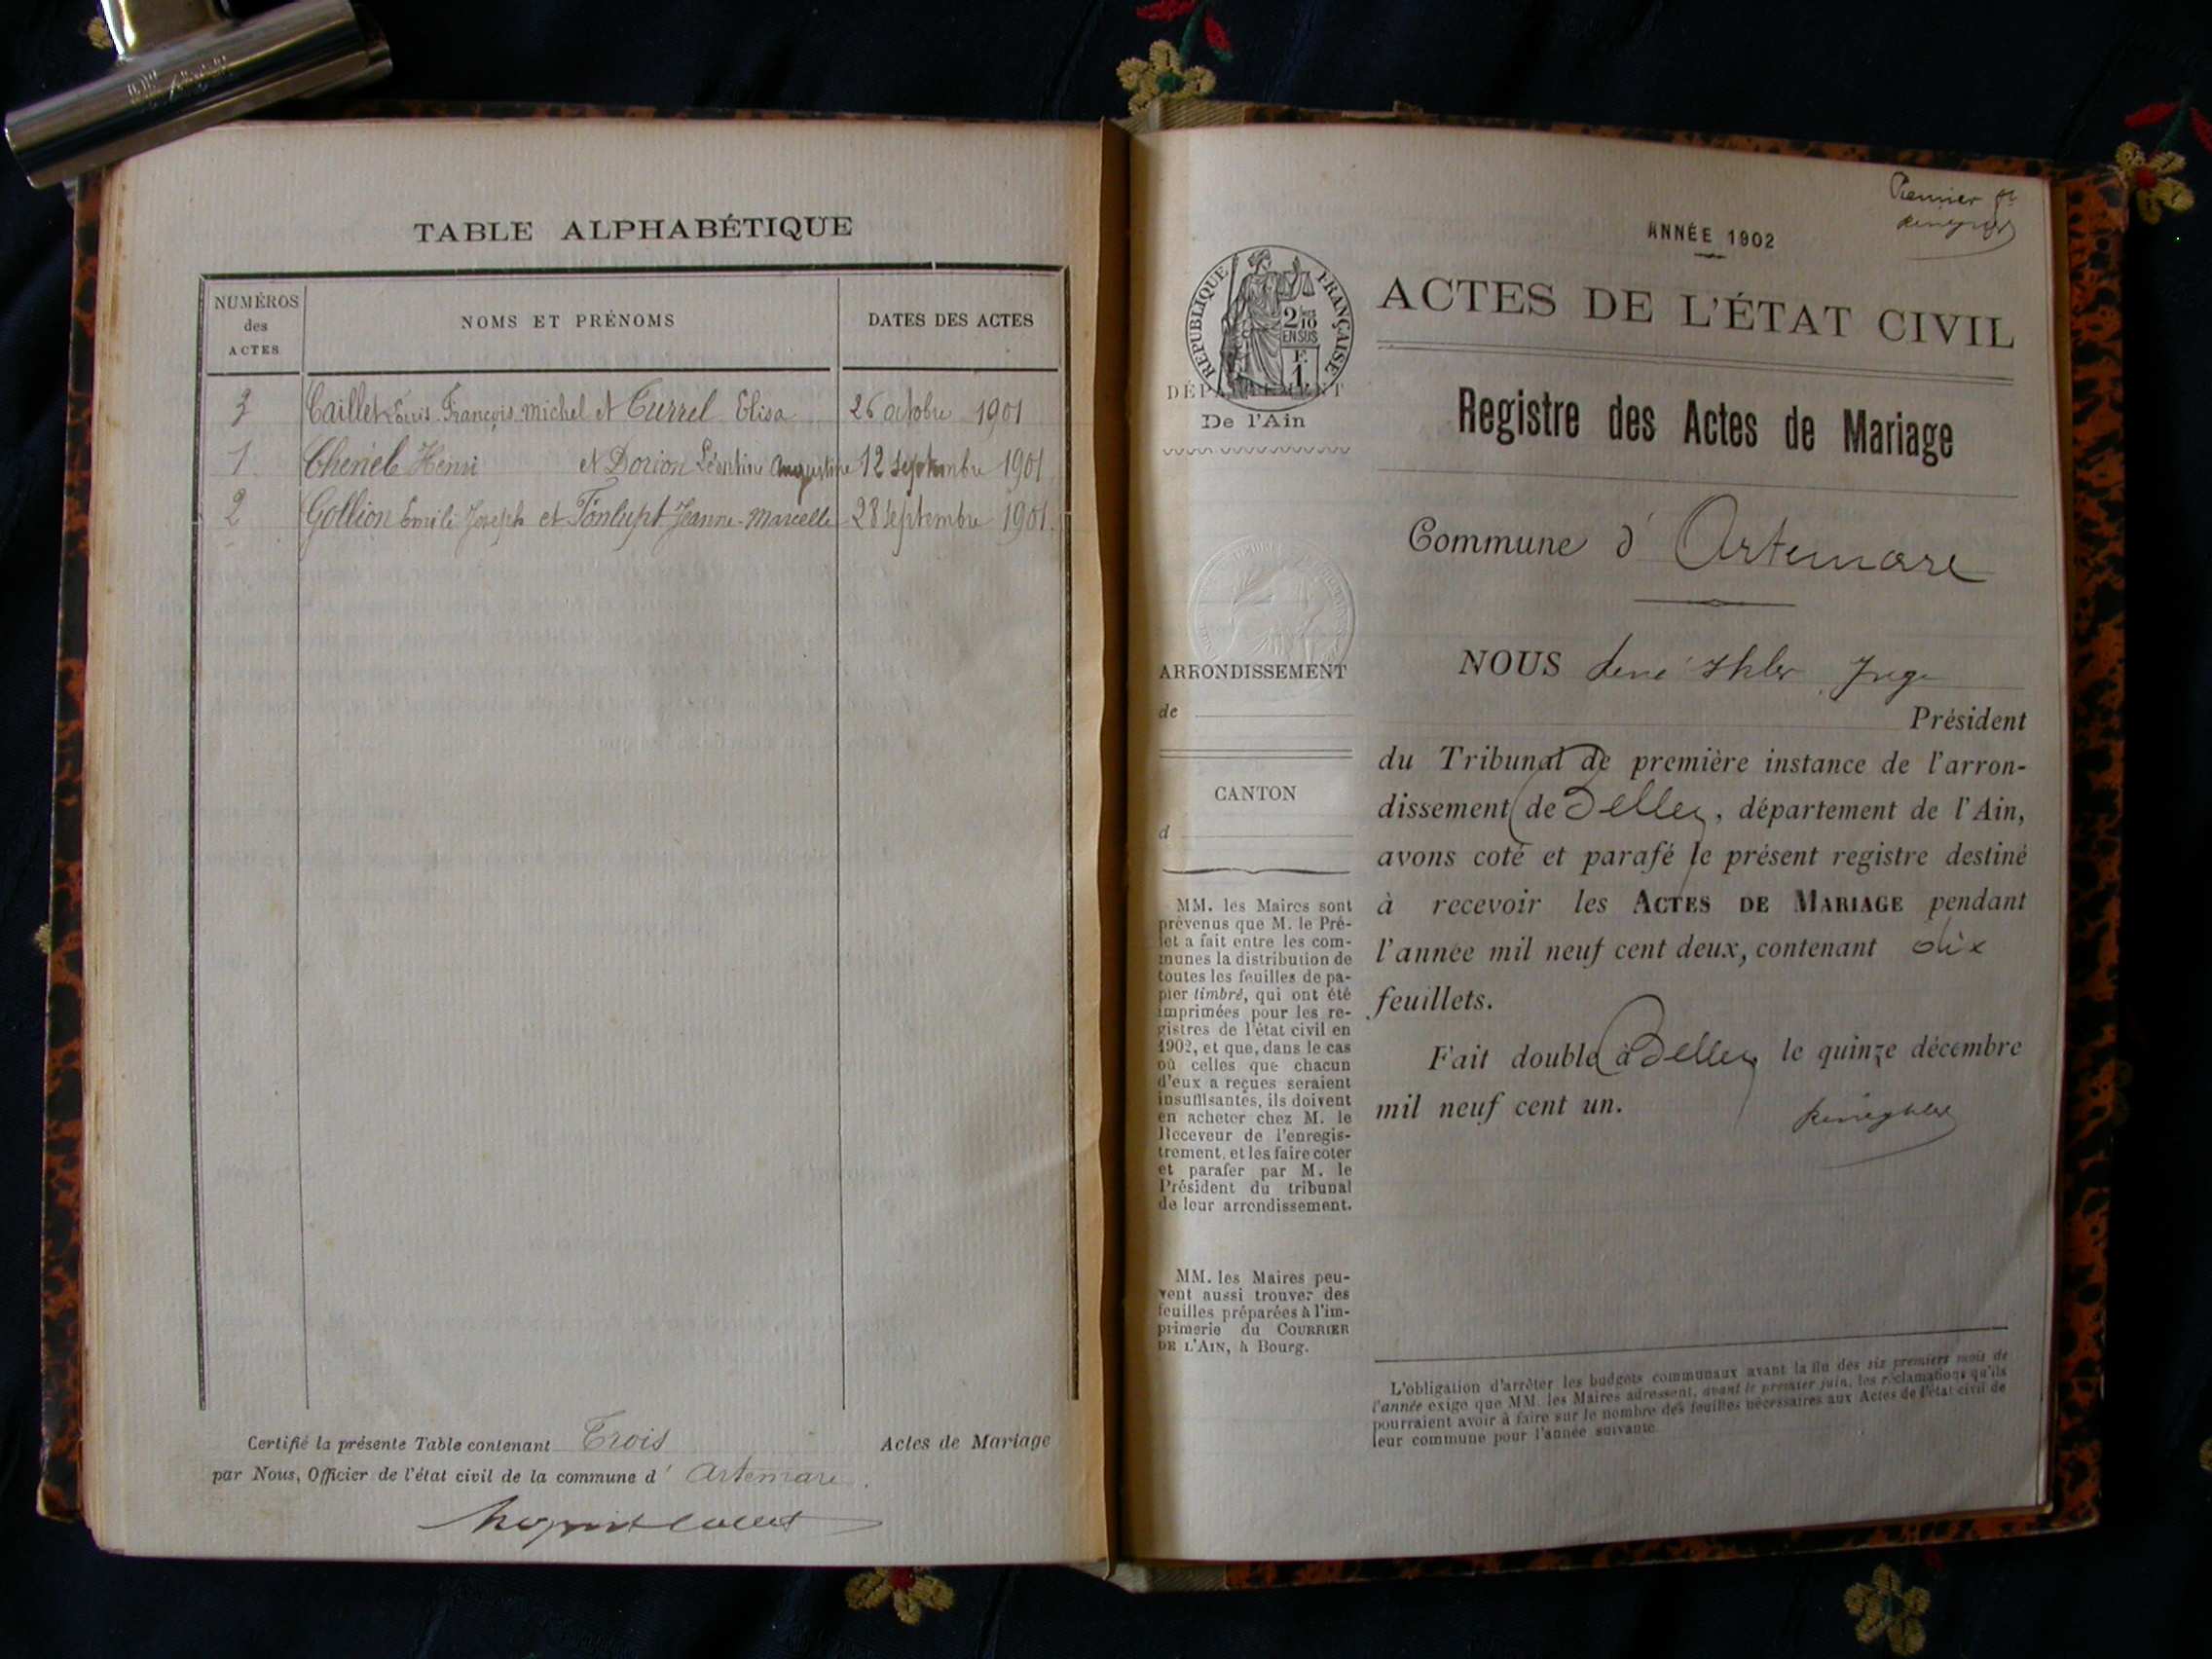 TABLE ALPHABÉTIQUE
NUMÉROS
des
ACTES
NOMS ET PRÉNOMS
DATES DES ACTES
3 Caillet Louis François Michel et Currel Elisa 26 octobre 1901
1 Henri et Dorion Léontine Augustine 12 septembre 1901
2 Gollion Emile Joseph et Fonlupt Jeanne-Marcelle 28 septembre 1901
Certifié la présente Table contenant Trois Actes de Mariage
par Nous, Officier de l'état civil de la commune d' Artemare
Premier
ANNÉE 1902
RÉPUBLIQUE FRANÇAISE
2/10
EN SUS
F.
1
DÉPARTEMENT
De l'Ain
ARRONDISSEMENT
de
CANTON
d
MM. les Maires sont
prévenus que M. le Pré-
fet a fait entre les com-
munes la distribution de
toutes les feuilles de pa-
pier timbré, qui ont été
imprimées pour les re-
gistres de l'état civil en
1902, et que, dans le cas
où celles que chacun
d'eux a reçues seraient
insuffisantes, ils doivent
en acheter chez M. le
Receveur de l'enregis-
trement, et les faire coter
et parafer par M. le
Président du tribunal
de leur arrondissement.
MM. les Maires peu-
vent aussi trouver des
feuilles préparées à l'im-
primerie du COURRIER
DE L'AIN, à Bourg.
ACTES DE L'ÉTAT CIVIL
Registre des Actes de Mariage
Commune d' Artemare
NOUS René Ihler Juge
Président
du Tribunal de première instance de l'arron-
dissement de Belley, département de l'Ain,
avons coté et parafé le présent registre destiné
à recevoir les ACTES DE MARIAGE pendant
l'année mil neuf cent deux, contenant dix
feuillets.
Fait double à Belley le quinze décembre
mil neuf cent un.
L'obligation d'arrêter les budgets communaux avant la fin des six premiers mois de
l'année exige que MM. les Maires adressent, avant le premier juin, les réclamations qu'ils
pourraient avoir à faire sur le nombre des feuilles nécessaires aux Actes de l'état civil de
leur commune pour l'année suivante.